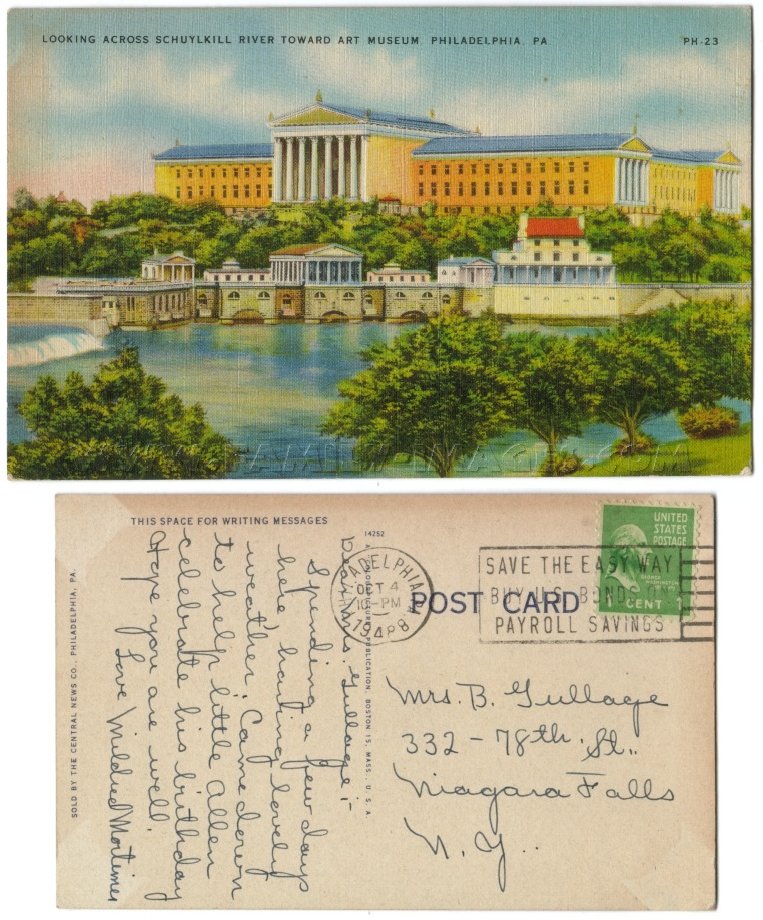 LOOKING ACROSS SCHUYLKILL RIVER TOWARD ART MUSEUM, PHILADELPHIA, PA
PH-23
THIS SPACE FOR WRITING MESSAGES
14252
Dear Mrs. Gullage:-
Spending a few days
here having lovely
weather. Came down
to help little Allen
celebrate his birthday
Hope you are well.
Love Mildred Mortimer
SOLD BY THE CENTRAL NEWS CO., PHILADELPHIA, PA.
PUBLICATION, BOSTON 15, MASS., U.S.A.
OCT 4
10-PM
1948
POST CARD
SAVE THE EASY WAY
BUY U.S. BONDS
PAYROLL SAVINGS
UNITED
STATES
POSTAGE
GEORGE
WASHINGTON
1 CENT 1
Mrs. B. Gullage
332-78th. St..
Niagara Falls
N.Y.